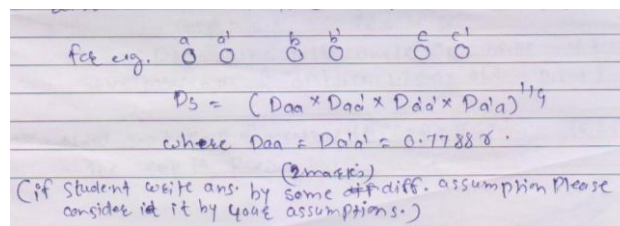 a a' b b' c c'
for eg.
Ds = (Daa × Daa' × Da'a' × Da'a)^1/4
where Daa = Da'a' = 0.7788 r.
(2 marks)
(if student write ans. by some diff. assumption Please
consider it by your assumptions.)